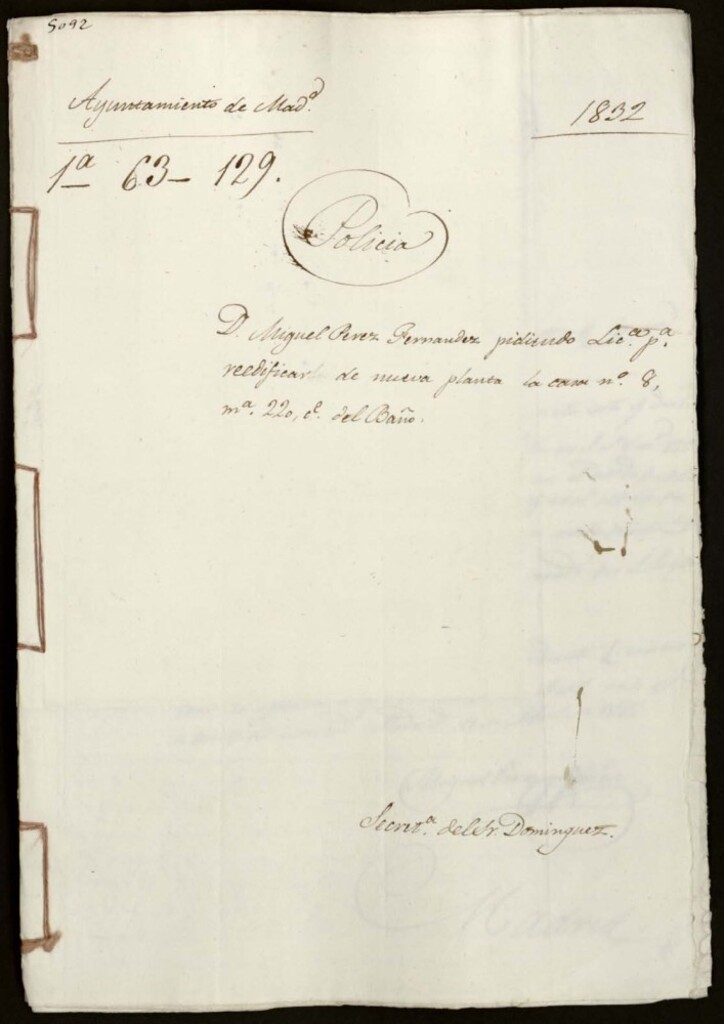 5092
Ayuntamiento de Mad.d
1832
1a 63- 129.
Policia
D. Miguel Perez Fernandez pidiendo Lic.a p.a
reedificar de nueva planta la casa n.o 8,
m.a 220, c.e del Baño.
Secret.a del Sr. Dominguez.
Madrid